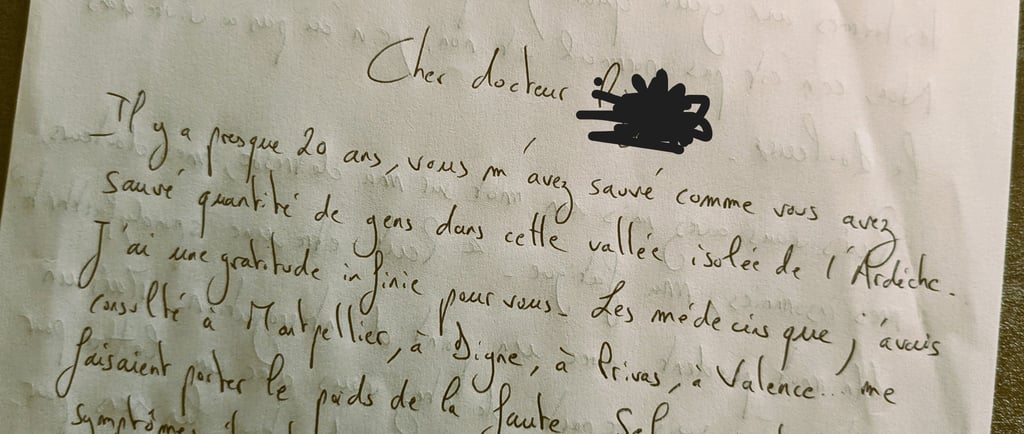 Cher docteur
Il y a presque 20 ans, vous m'avez sauvé comme vous avez
sauvé quantité de gens dans cette vallée isolée de l'Ardèche.
J'ai une gratitude infinie pour vous. Les médecins que j'avais
consulté à Montpellier, à Digne, à Privas, à Valence... me
faisaient porter le poids de la faute.